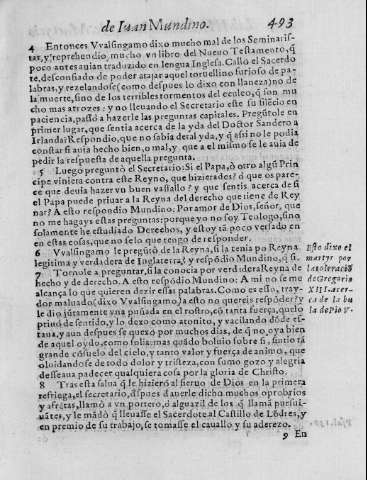 de Iuan Mundino. 493
4 Entonces Vvalsingamo dixo mucho mal de los Seminaris-
tas, y reprehendio, mucho vn libro del Nueuo Testamento, q̃
poco antes auian traduzido en lengua Inglesa. Callò el Sacerdo
te, desconfiado de poder atajar aquel toruellino furioso de pa-
labras, y rezelandose (como despues lo dixo con llaneza) no de
la muerte, sino de los terribles tormentos del eculeo, q̃ son mu
cho mas atrozes: y no lleuando el Secretario este su silẽcio en
paciencia, passò a hazerle las preguntas capitales. Pregũtole en
primer lugar, que sentia acerca de la yda del Doctor Sandero à
Irlanda? Respondio, que no sabia de tal yda, y q̃ assi no le podia
constar si auia hecho bien, o mal, y que a el mismo se le auia de
pedir la respuesta de aquella pregunta.
5 Luego preguntò el Secretario: Si el Papa, ò otro algũ Prin
cipe viniera contra este Reyno, que hizierades? ò que os pare-
ce que deuia hazer vn buen vassallo? y que sentis acerca de si
el Papa puede priuar a la Reyna del derecho que tiene de Rey
nar? A esto respondio Mundino: Por amor de Dios, señor, que
no me hagays estas preguntas: porque yo no soy Teologo, sino
solamente he estudiado Derechos, y estoy tã poco versado en
en estas cosas, que no se lo que tengo de responder.
6 Vvalsingamo le pregũto de la Reyna, si la tenia por Reyna
legitima y verdadera de Inglaterra? y respõdio Mundino, q̃ si. Este dixo el
7 Tornole a preguntar, si la conocia por verdadera Reyna de martyr por
hecho y de derecho. A esto respõdio Mundino: A mi no se me la
alcança lo que quieren dezir essas palabras. Como es esso, tray- de Gregorio
dor maluado (dixo Vvalsingamo) a esto no quereis respõder? y XIII. acer-
le dio jũtamente vna puñada en el rostro, cõ tãta fuerça, que lo ca de la bu
priuò de sentido, y lo dexo como atonito, y vacilando dõde es- la de Pio V.
taua, y aun despues se quexo por muchos dias, de q̃ no oya bien
de aquel oydo, como solia: mas quãdo boluio sobre si, sintio tã
grande cõsuelo del cielo, y tanto valor y fuerça de animo, que
oluidandose de todo dolor y tristeza, con sumo gozo y alegria
desseaua padecer qualquiera cosa por la gloria de Christo.
8 Tras esta salua q̃ le hizierõ al sieruo de Dios en la primera
refriega, el secretario, dspues dauerle dicho muchos oprobrios
y afrẽtas, llamò a vn portero, ò alguazil de los q̃ llamã pursui-
uãtes, y le mãdò q̃ lleuasse el Sacerdote al Castillo de Lõdres, y
en premio de su trabajo, se tomasse el cauallo y su aderezo.
9 En